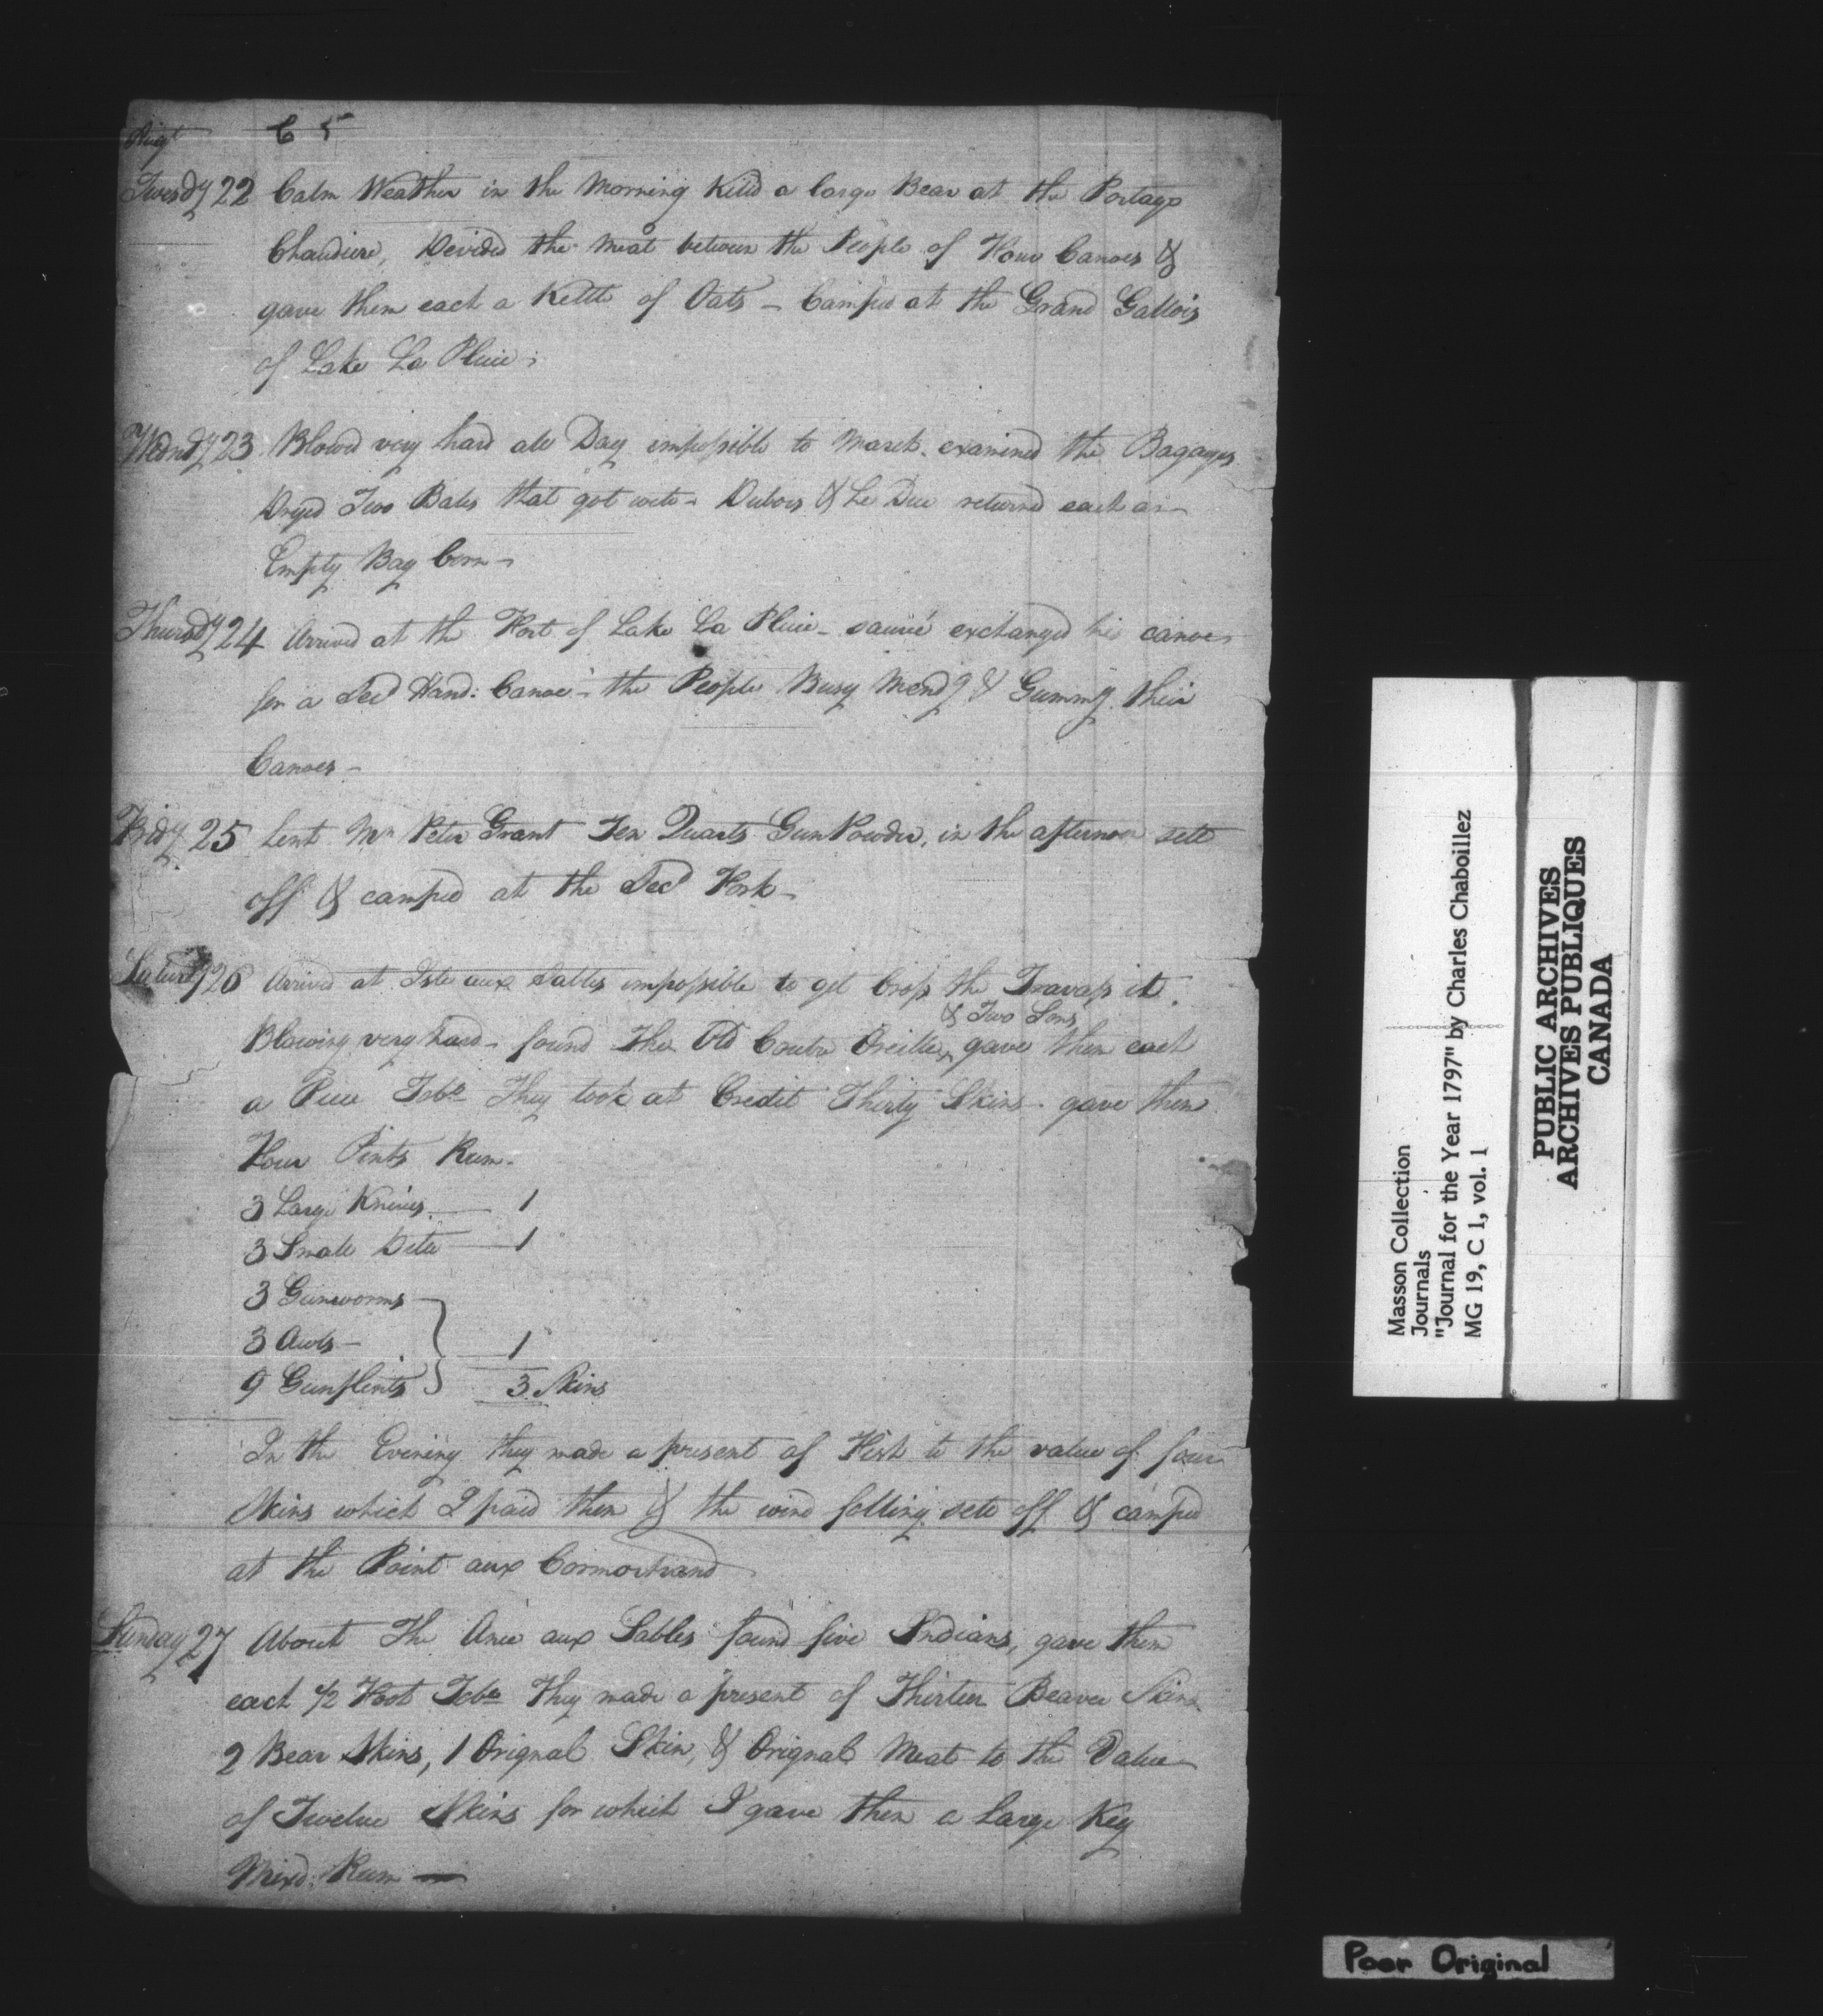 Augt C 5
Tuesdy 22 Calm Weather in the Morning Kill'd a large Bear at the Portage
Chaudiere, Devided the Meat between the People of Four Canoes &
gave them each a Kettle of Oats - Camped at the Grand Gallois
of Lake La Pluie;
Wednsdy 23 Blowed very hard all Day impossible to March. examined the Bagages
Dryed Two Bales that got wett - Dubois & Le Duc returned each an
Empty Bag Corn -
Thursdy 24 Arrived at the Fort of Lake La Pluie - exchanged his canoe
for a Secd Hand: Canoe - the People Busy Mendg & Gummg their
Canoes -
Fridy 25 Lent Mr Peter Grant Ten Quarts Gun Powder, in the afternoon sett
off & camped at the Secd Fork -
Saturdy 26 Arrived at Isle aux Sables impossible to get Cross the Travass it
& Two Sons
Blowing very hard - found The Old Courte Oreille, gave them each
a Piece Tobo They took at Credit Thirty Skins - gave them
Four Pints Rum -
3 Large Knives — 1
3 Small Ditto — 1
3 Gunworms
3 Awls — 1
9 Gunflints 3 Skins
In the Evening they made a present of Fish to the value of four
Skins which I paid them & the wind falling sett off & camped
at the Point aux Cormorhand
Sunday 27 About The Ance aux Sables found five Indians, gave them
each 1/2 Foot Tobo They made a present of Thirteen Beaver Skins
2 Bear Skins, 1 Orignal Skin, & Orignal Meat to the Value
of Twelve Skins for which I gave them a Large Keg
Mixd: Rum —
Masson Collection
Journals
"Journal for the Year 1797" by Charles Chaboillez
MG 19, C 1, vol. 1
PUBLIC ARCHIVES
ARCHIVES PUBLIQUES
CANADA
Poor Original